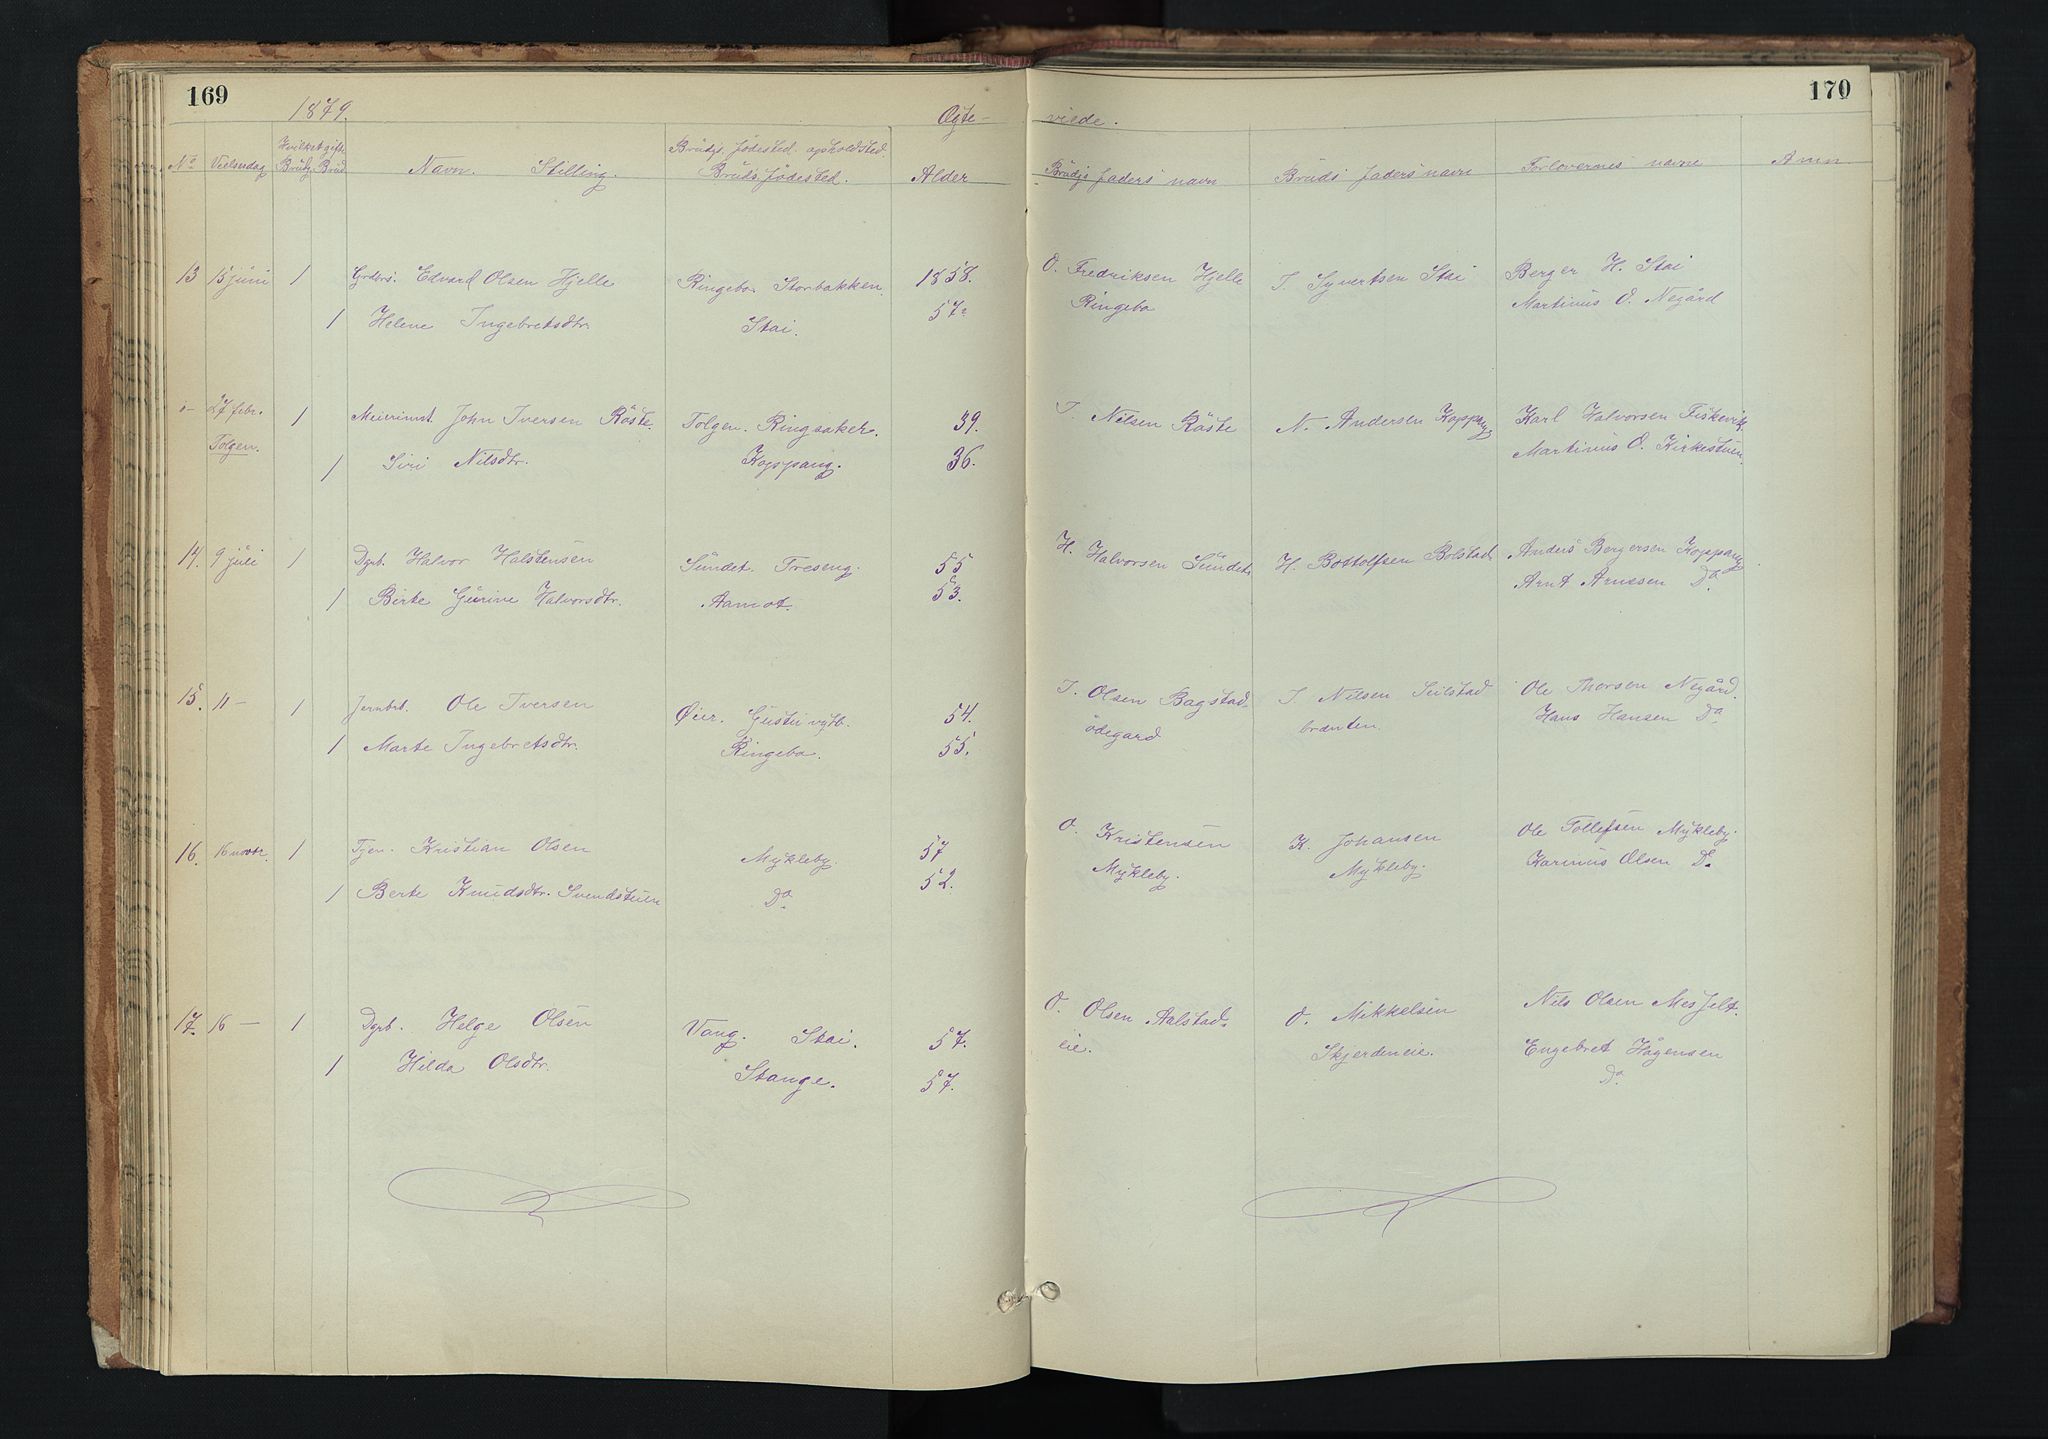 169
170
1879.
Ægte-
viede.
No
Vielsesdag
Hvilket gift
Brudg Brud
Navn. Stilling.
Brudgs. fødested. opholdsted.
Bruds fødested.
Alder
Brudgs faders navn
Bruds faders navn
Forlovernes navne
Anm.
13 15 juni 1 Grders. Edvard Olsen Hjelle Ringebo. Storbakken. 1858. O. Fredriksen Hjelle I. Syvertsen Stai Berger H. Stai
Ringebo Martinus O. Negård
1 Helene Ingebretsdtr. Stai. 57.
0- 27 febr. 1 Meierimst. John Iversen Röste. Tolgen. Ringsaker. 39. I. Nilsen Röste N. Andersen Koppang Karl Halvorsen Fiskevik
Tolgen. Martinus O. Kirkestuen.
1 Siri Nilsdtr. Koppang. 36.
14. 9 juli 1 Dgrb. Halvor Halstensen Sundet. Treseng. 55 H. Halvorsen Sundet H. Bottolfsen Bolstad Anders Bergersen Koppang
1 Birte Gurine Halvorsdtr. Aamot. 53. Arnt Arnesen Do.
15. 11 - 1 Jernbrt. Ole Iversen Øier. 54. I. Olsen Bagstad- I Nilsen Seilstad Ole Thorsen Negård.
ödegard brænten. Hans Hansen Do.
1 Marte Ingebretsdtr. Ringebo. 55.
16. 16 novbr. 1 Tjen. Kristian Olsen Mykleby. 57 O. Kristensen K. Johansen Ole Tollefsen Mykleby.
Mykleby. Mykleby. Karinus Olsen Do.
1 Berte Knudsdtr. Svendstuen Do. 52.
17. 16 - 1 Dgrb. Helge Olsen Vang. Stai. 57. O. Olsen Aalstad- O. Mikkelsen Nils Olsen Mesfelt.
eie. Skjerdeneie. Engebret Hågensen
1 Hilda Olsdtr. Stange. 57. Do.